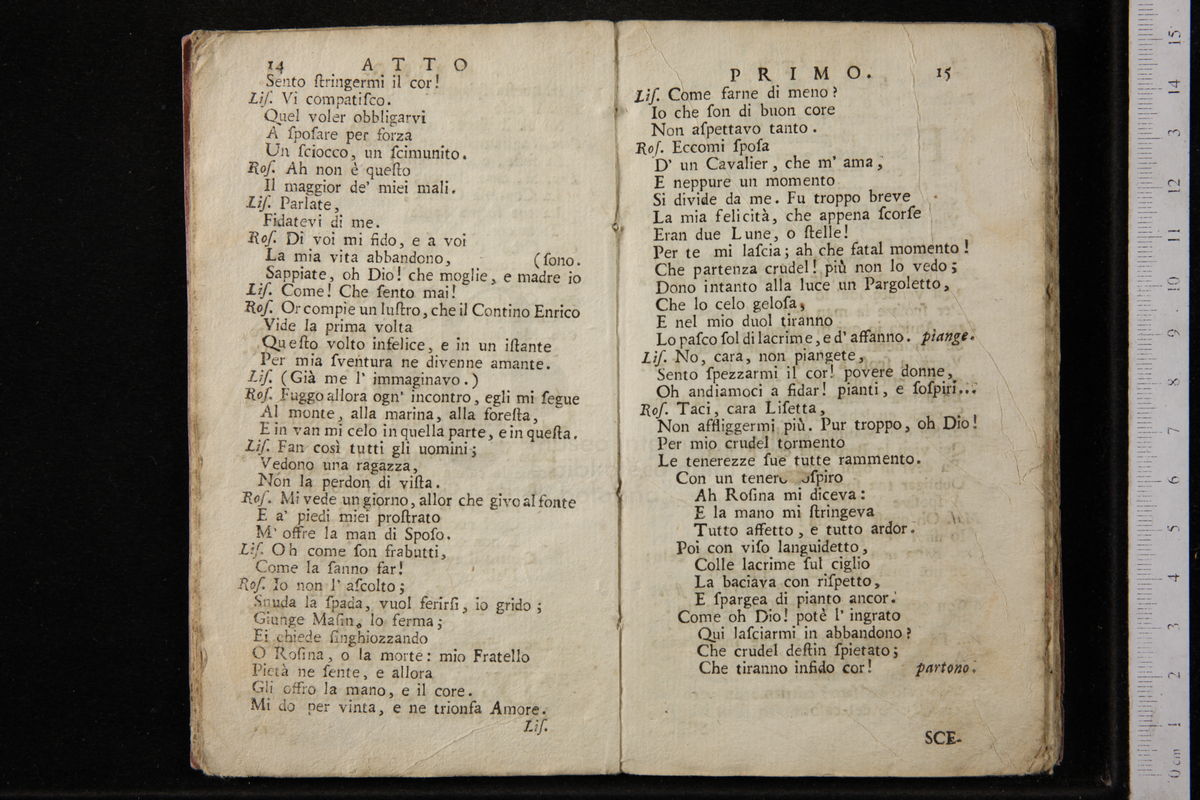 14 ATTO
Sento ſtringermi il cor!
Liſ. Vi compatiſco.
Quel voler obbligarvi
A ſpoſare per forza
Un ſciocco, un ſcimunito.
Roſ. Ah non è queſto
Il maggior de' miei mali.
Liſ. Parlate,
Fidatevi di me.
Roſ. Di voi mi fido, e a voi
La mia vita abbandono, (ſono.
Sappiate, oh Dio! che moglie, e madre io
Liſ. Come! Che ſento mai!
Roſ. Or compie un luſtro, che il Contino Enrico
Vide la prima volta
Queſto volto infelice, e in un iſtante
Per mia ſventura ne divenne amante.
Liſ. (Già me l' immaginavo.)
Roſ. Fuggo allora ogn' incontro, egli mi ſegue
Al monte, alla marina, alla foreſta,
E in van mi celo in quella parte, e in queſta.
Liſ. Fan così tutti gli uomini;
Vedono una ragazza,
Non la perdon di viſta.
Roſ. Mi vede un giorno, allor che givo al fonte
E a' piedi miei proſtrato
M' offre la man di Spoſo.
Liſ. Oh come ſon frabutti,
Come la ſanno far!
Roſ. Io non l' aſcolto;
Snuda la ſpada, vuol ferirſi, io grido;
Giunge Maſin, lo ferma;
Ei chiede ſinghiozzando
O Roſina, o la morte: mio Fratello
Pietà ne ſente, e allora
Gli offro la mano, e il core.
Mi do per vinta, e ne trionfa Amore.
Liſ.
PRIMO. 15
Liſ. Come farne di meno?
Io che ſon di buon core
Non aſpettavo tanto.
Roſ. Eccomi ſpoſa
D' un Cavalier, che m' ama,
E neppure un momento
Si divide da me. Fu troppo breve
La mia felicità, che appena ſcorſe
Eran due Lune, o ſtelle!
Per te mi laſcia; ah che fatal momento!
Che partenza crudel! più non lo vedo;
Dono intanto alla luce un Pargoletto,
Che lo celo geloſa,
E nel mio duol tiranno
Lo paſco ſol di lacrime, e d' affanno. piange.
Liſ. No, cara, non piangete,
Sento ſpezzarmi il cor! povere donne,
Oh andiamoci a fidar! pianti, e ſoſpiri...
Roſ. Taci, cara Liſetta,
Non affliggermi più. Pur troppo, oh Dio!
Per mio crudel tormento
Le tenerezze ſue tutte rammento.
Con un tenero oſpiro
Ah Roſina mi diceva:
E la mano mi ſtringeva
Tutto affetto, e tutto ardor.
Poi con viſo languidetto,
Colle lacrime ſul ciglio
La baciava con riſpetto,
E ſpargea di pianto ancor.
Come oh Dio! potè l' ingrato
Qui laſciarmi in abbandono?
Che crudel deſtin ſpietato;
Che tiranno infido cor! partono.
SCE-